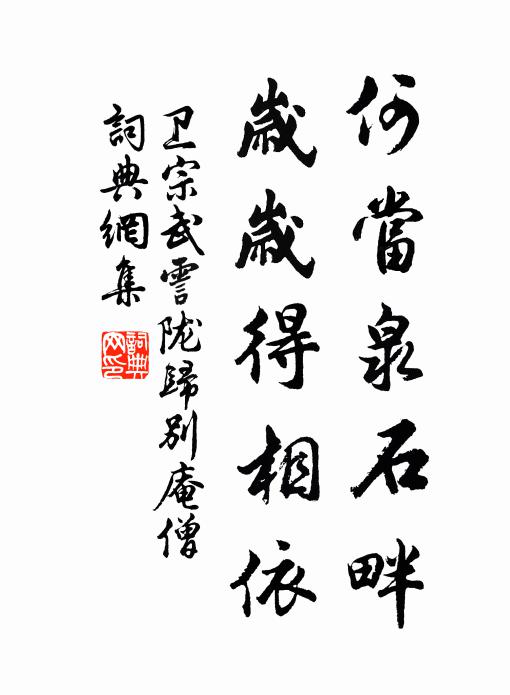 何當泉石畔
歲歲得相依
卫宗武雪陇歸别庵僧
詞典網集
詞典网印